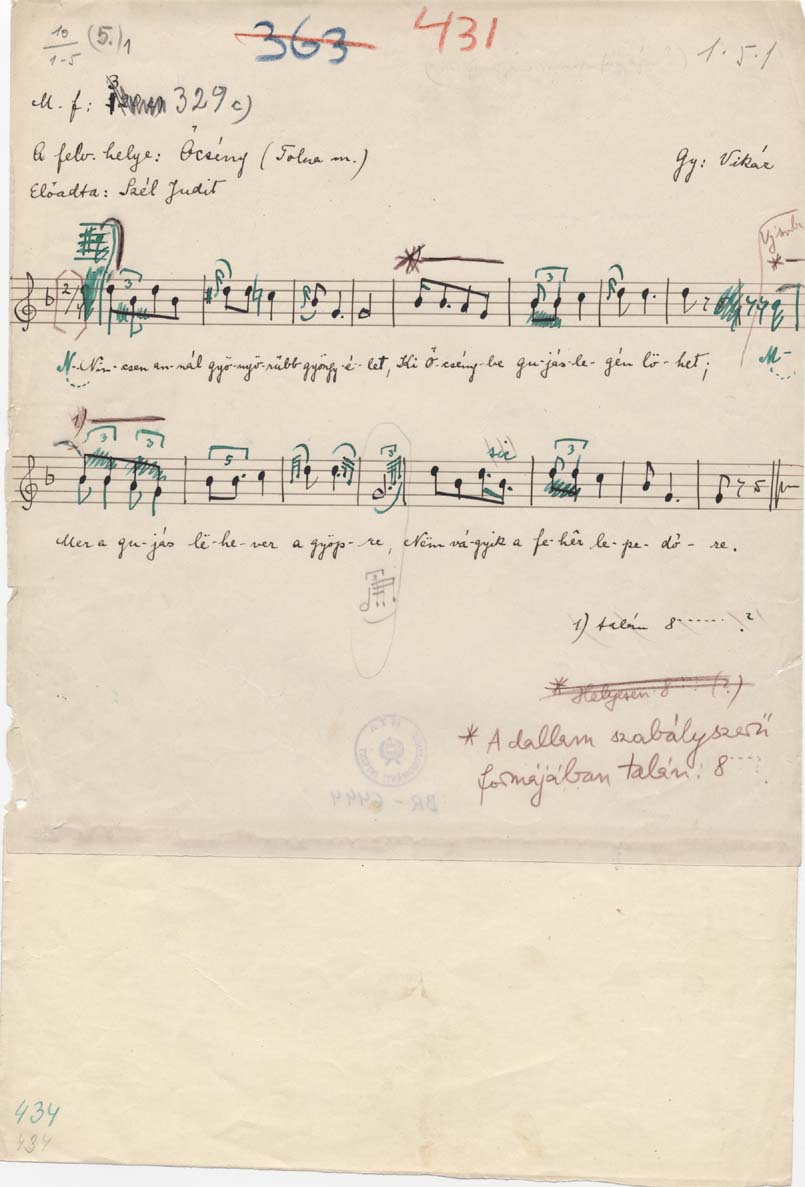 10 (5.)1 363 431 1.5.1
1-5
M. f: 329 c)
A felv. helye: Őcsény (Tolna m.) Gy: Vikár
Előadta: Szél Judit
2/4 3 3
N- Nin-csen an-nál gyö-nyö-rűbb györgy-é-let, Ki Ő-csény-be gu-jás-le-gén lö-het; M-
1) 3 3 5 3 sic 3
Mer a gu-jás lë-he-ver a gyöp-re, Nëm vá-gyik a fe-hêr le-pe-dő-re.
1) talán 8 ?
* Helyesen: 8 (?)
* A dallam szabályszerű
formájában talán: 8
BR-6444
434
434